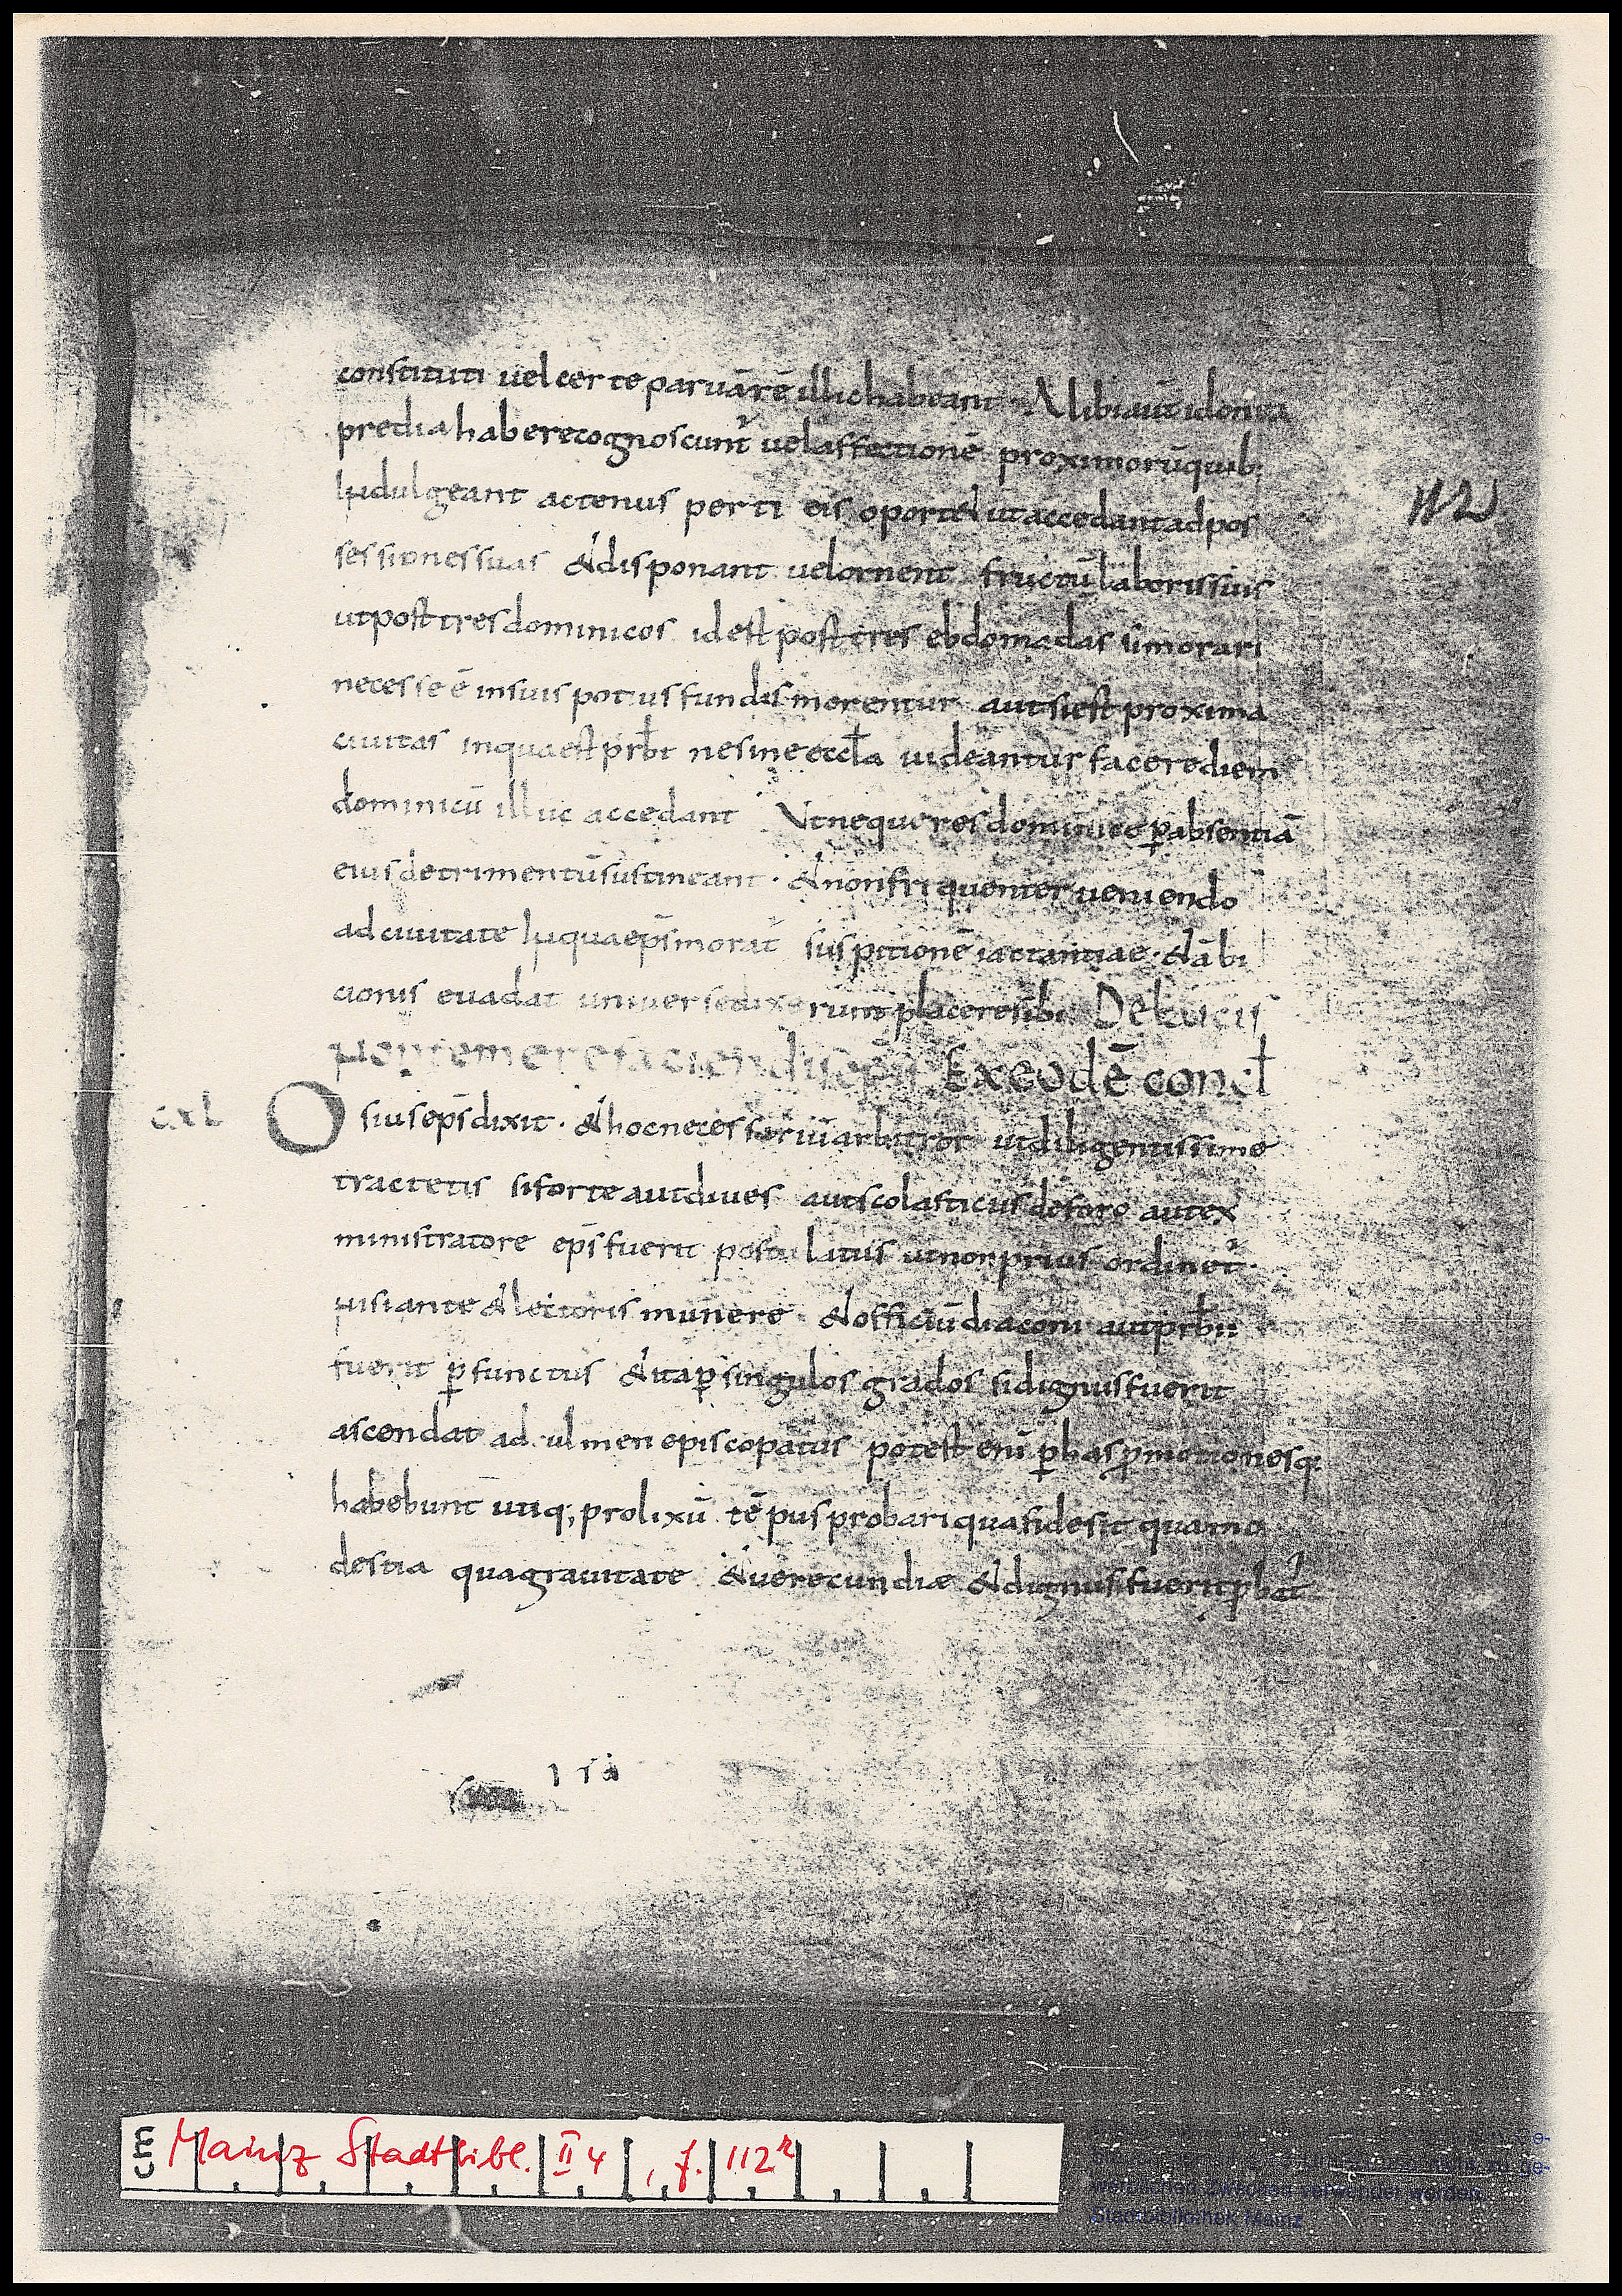 constituti uel certe paruā rē illic habeant · Alibi aut̄ idonea
predia habere cognoscunt᷑ uel affectionē proximorū quib;
Indulgeant actenus perti eis oportet ut accedant ad pos
sessiones suas & disponant uel ornent fructū laboris suis
ut post tres dominicos id est post tres ebdomadas si morari
necesse ē in suis potius fundis morentur aut si est proxima
ciuitas in qua est prb̄t ne sine eccl̄a uideantur facere diem
dominicū illuc accedant Vt neque res dominice ꝑ absentiā
eius detrimentū sustineant · & non friquenter ueniendo
ad ciuitate In qua ep̄s morat᷑ suspitionē iactantiae · & ābi
cionis euadat uniuersi dixerunt placere sibi De laicis
non temere faciendis ep̄is Ex eodē concł
112
cxl
Osius ep̄s dixit · & hoc necessariū arbitror ut diligentissime
tractetis si forte aut diues aut scolasticus de foro aut ex
ministratore ep̄s fuerit postulatus ut non prius ordinet᷑ ·
Nisi ante & lectoris munere · & officiū diaconi aut prb̄ii
fuerit ꝑfunctus & ita ꝑ singulos grados si dignus fuerit
ascendat ad culmen episcopatus potest eni ꝑ has ꝓmotiones q;
habebunt utiq; prolixū tēpus probari qua fide sit qua mo
destia qua grauitate & uerecundiæ & dignus si fuerit ꝓbat᷑
cm
Mainz Stadtbibl. II 4, f. 112r
werblichen Zwecken verwendet werden.
Stadtbibliothek Mainz